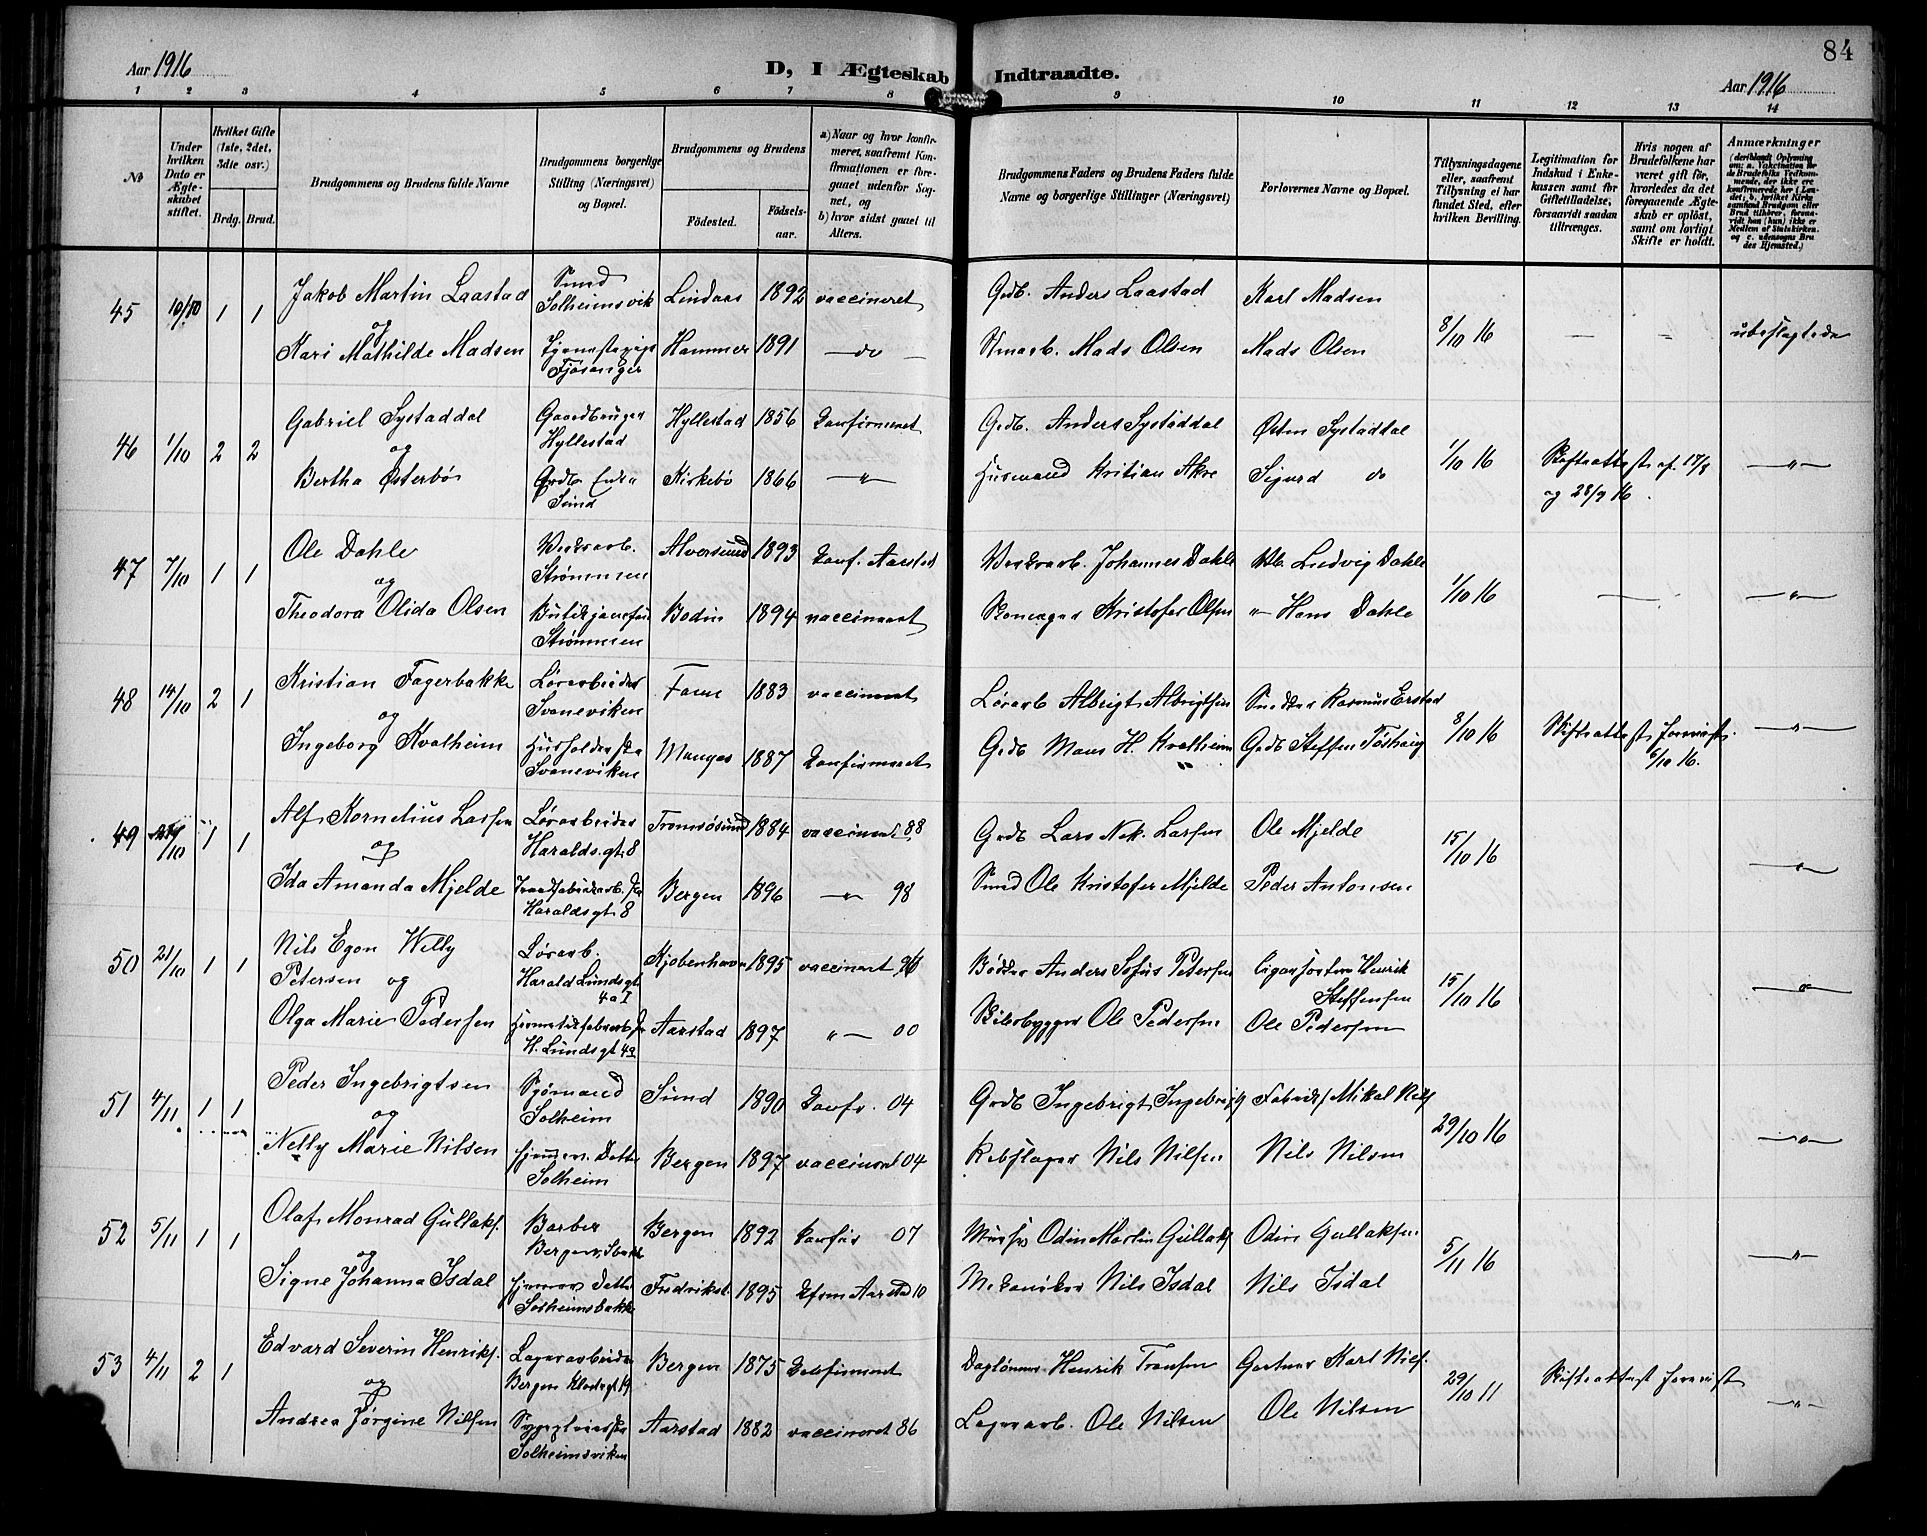 84
Aar 1916
D, I Ægteskab Indtraadte.
Aar 1916
1 2 3 4 5 6 7 8 9 10 11 12 13 14
No
Under hvilken Dato er Ægteskabet stiftet.
Hvilket Gifte (1ste, 2det, 3die osv.)
Brdg. Brud.
Brudgommens og Brudens fulde Navne
Brudgommens borgerlige Stilling (Næringsvei) og Bopæl.
Brudgommens og Brudens
Fødested.
Fødselsaar.
a) Naar og hvor konfirmeret, saafremt Konfirmationen er foregaaet udenfor Sognet, og
b) hvor sidst gaaet til Alters.
Brudgommens Faders og Brudens Faders fulde Navne og borgerlige Stillinger (Næringsvei)
Forlovernes Navne og Bopæl.
Tillysningsdagene eller, saafremt Tillysning ei har fundet Sted, efter hvilken Bevilling.
Legitimation for Indskud i Enkekassen samt for Giftetilladelse, forsaavidt saadan tiltrænges.
Hvis nogen af Brudefolkene har været gift før, hvorledes da det foregaaende Ægteskab er opløst, samt om lovligt Skifte er holdt.
Anmærkninger
45 10/10 1 1 Jakob Martin Laastad Smed Solheimsvik Lindaas 1892 vaccineret Grdb. Anders Laastad Karl Madsen 8/10 16 — — ubeslægtede
og
Kari Mathilde Madsen Fjøsanger Hammer 1891 — do — Mads Olsen Mads Olsen
46 1/10 2 2 Gabriel Systaddal Gaardbruger Hyllestad Hyllestad 1856 Konfirmeret Grdb. Anders Systaddal Østen Systaddal 1/10 16 Skifteattest af 17/8 og 28/9 16. —"—
og
Bertha Østerbø Grdb. Enke Sund Kirkebø 1866 —"— Husmand Kristian Akre Sigurd do
47 7/10 1 1 Ole Dahle Strømmen Alversund 1893 Konf. Aarstad Johannes Dahle Ludvig Dahle 1/10 16 — —"—
og
Theodora Olida Olsen Strømmen Bodin 1894 vaccineret Kristofer Olsen " Hans Dahle
48 14/10 2 1 Kristian Fagerbakke Løsarbeider Svaneviken Fane 1883 vaccineret Løsarb Albrigt Albrigtsen Rasmus Erstad 8/10 16 Skifteattest forevist 6/10 16. —"—
og
Ingeborg Kvalheim Svaneviken Manger 1887 Konfirmeret Grdb Mans H. Kvalheim Grdb Steffen
49 /10 1 1 Alf Kornelius Larsen Løsarbeider Haralds.gt 8 Tromsøsund 1884 vaccineret 88 Grdb Lars Nek. Larsen Ole Mjelde 15/10 16 —"—
og
Ida Amanda Mjelde Haraldsgt 8 Bergen 1896 —"— 98 Smed Ole Kristofer Mjelde Peder Antonsen
50 21/10 1 1 Nils Egon Willy Petersen og Løsarb. Harald Lundsgt 4a I Kjøbenhavn 1895 vaccineret 96 Bødker Anders Sofus Petersen Henrik Steffensen 15/10 16 —"—
Olga Marie Pedersen H. Lundsgt 4a Aarstad 1897 "— 00 Ole Pedersen Ole Pedersen
51 4/11 1 1 Peder Ingebrigtsen Sjømand Solheim Sund 1890 Konf. 04 Grdb Ingebrigt Mikal Nils 29/10 16 —"—
og
Nelly Marie Nilsen Solheim Bergen 1897 vaccineret 04 Rebslager Nils Nilsen Nils Nilsen
52 5/11 1 1 Olaf Monrad Gullaks. Barber Bergen Bergen 1892 Konfir 07 Odin Martin Gullaks Odin Gullaksen 5/11 16 —"—
og
Signe Johanna Isdal Solheimsbakke Fredrikst. 1895 Kfrm Aarstad 10 Mekaniker Nils Isdal Nils Isdal
53 4/11 2 1 Edvard Severin Henriks. Lagerarbeider Bergen Bergen 1875 Konfirmeret Dagløner Henrik Gartner Karl Nils. 29/10 11 Skifteattest forevist —"—
og
Andrea Jørgine Nilsen Solheimsviken Aarstad 1882 vaccineret 86 Lagerarb. Ole Nilsen Ole Nilsen